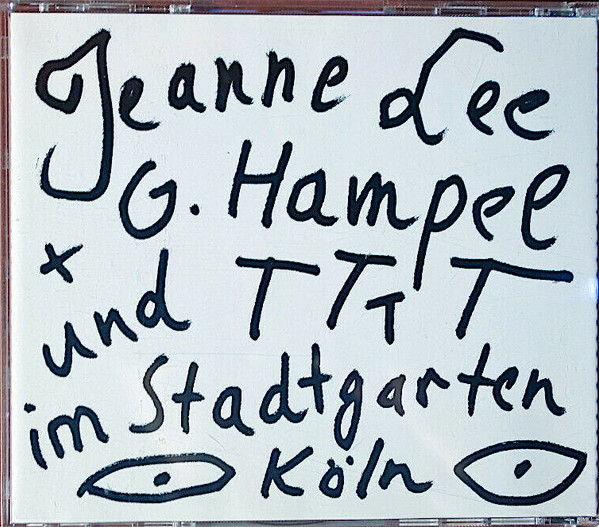 Jeanne Lee
G. Hampel
+
und TTTT
im Stadtgarten
Köln